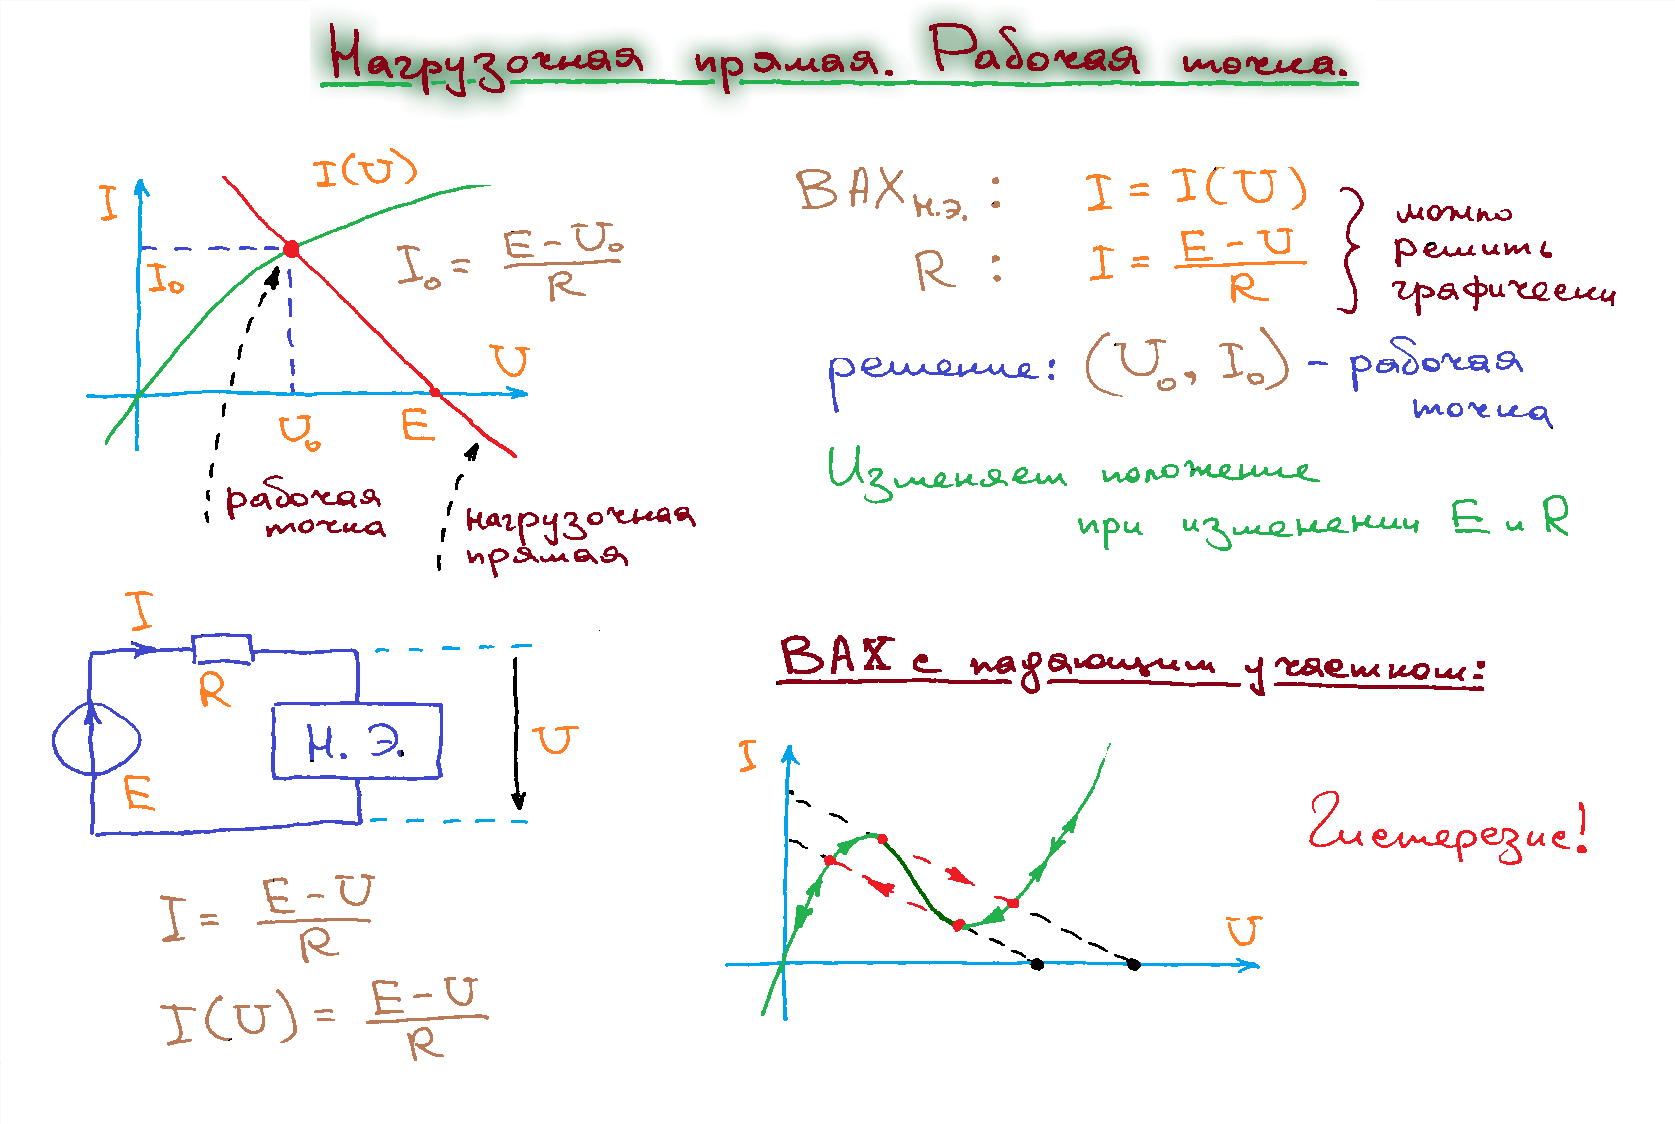 Нагрузочная прямая. Рабочая точка.
I
I(U)
I₀
I₀ = (E - U₀)/R
U
U₀
E
рабочая
точка
нагрузочная
прямая
ВАХ н.э. : I = I(U)
R : I = (E - U)/R
можно
решить
графически
решение: (U₀, I₀) - рабочая
точка
Изменяем положение
при изменении E и R
I
R
E
Н. Э.
U
I = (E - U)/R
I(U) = (E - U)/R
ВАХ с падающим участком:
I
U
Гистерезис!